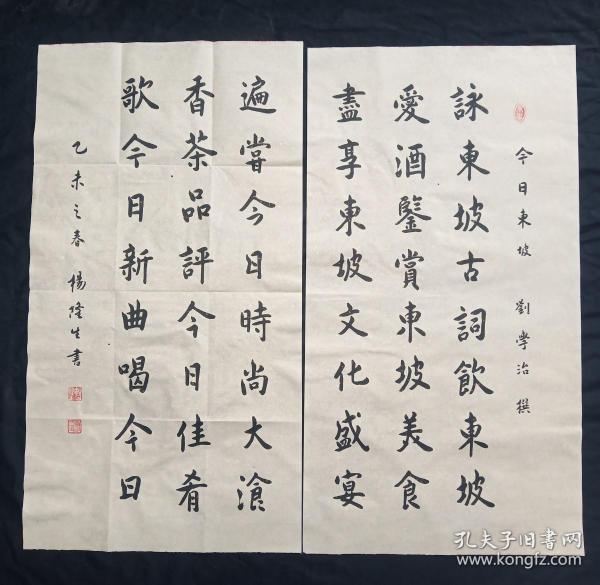 今日東坡 劉學治撰
詠東坡古詞飲東坡
愛酒鑒賞東坡美食
盡享東坡文化盛宴
遍嘗今日時尚大湌
香茶品評今日佳肴
歌今日新曲喝今日
乙未之春 楊隆生書
孔夫子旧书网
www.kongfz.com